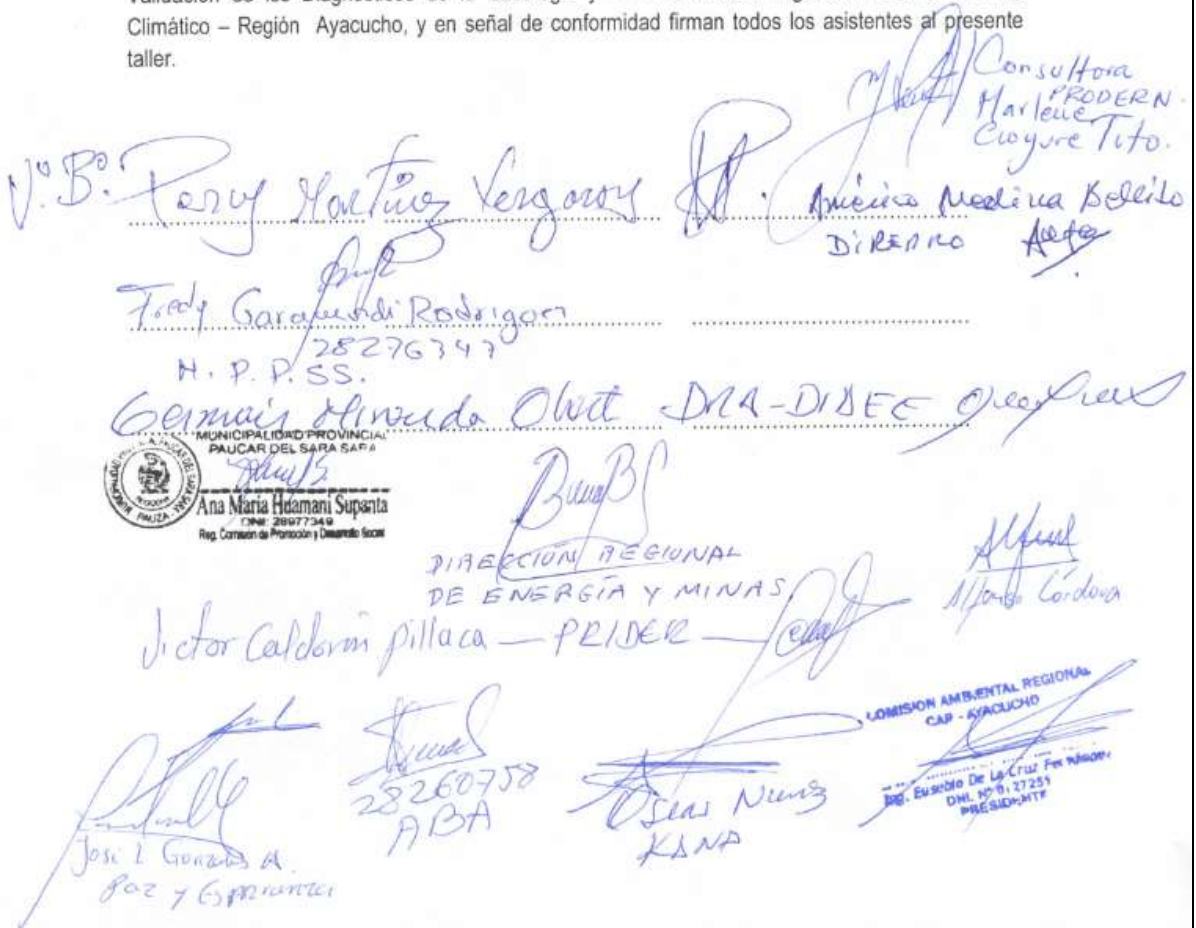 Climático – Región Ayacucho, y en señal de conformidad firman todos los asistentes al presente
taller.
Consultora
PRODERN.
Marlene
Tito.
V.º B.º: Percy Martínez
Américo Medina Bellido
DIRERRO
Fredy Rodrigo
28276347
H. P. P. SS.
Germain Miranda DRA-DIDEE
MUNICIPALIDAD PROVINCIAL
PAUCAR DEL SARA SARA
Ana Maria Huamani Supanta
DNI: 28977349
Reg. Comisión de Promoción y Desarrollo Social
DIRECCIÓN REGIONAL
DE ENERGÍA Y MINAS
Alfonso Córdova
Victor Calderón Pillaca — PRIDER —
COMISION AMBIENTAL REGIONAL
CAR - AYACUCHO
Ing. Eusebio De La Cruz
PRESIDENTE
28260758
ABA
Oseas Nunez
KANA
José L Gonzales A.
Paz y Esperanza